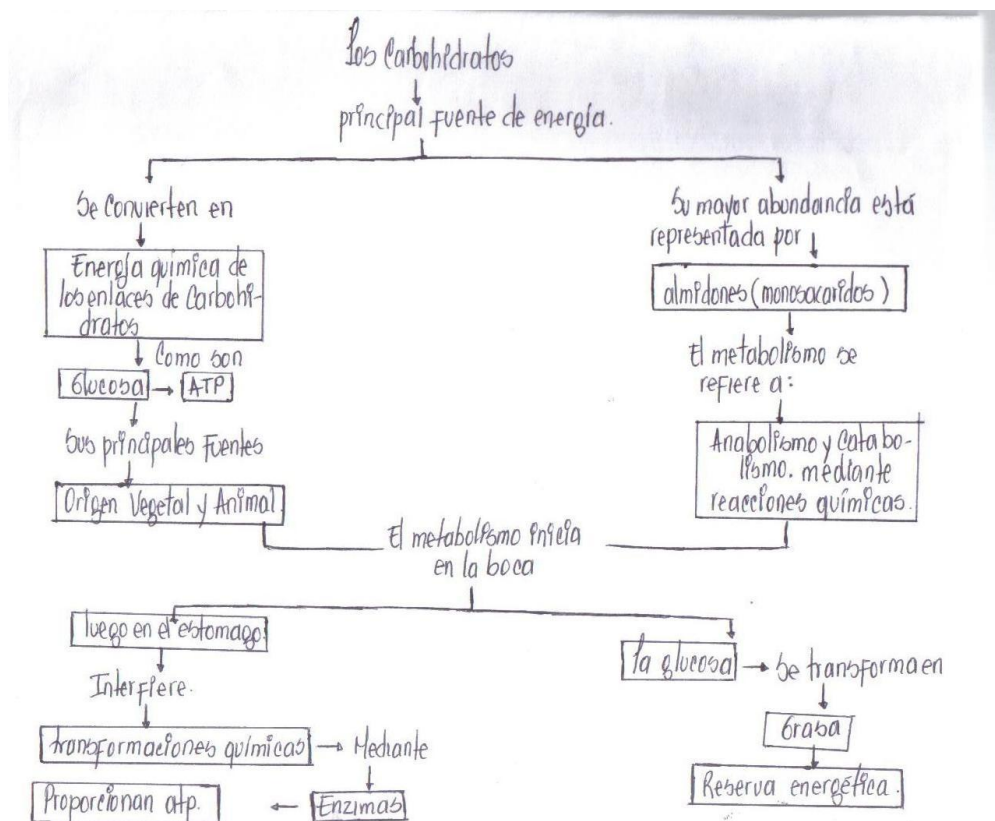 Los Carbohidratos
principal fuente de energía.
Se convierten en
Energía química de
los enlaces de Carbohi-
dratos
Como son
Glucosa
ATP
Sus principales Fuentes
Origen Vegetal y Animal
Su mayor abundancia está
representada por
almidones (monosacaridos)
El metabolismo se
refiere a:
Anabolismo y Catabo-
lismo. mediante
reacciones químicas.
El metabolismo inicia
en la boca
luego en el estomago
Interfiere.
transformaciones químicas
Mediante
Enzimas
Proporcionan atp.
la glucosa
se transforma en
Grasa
Reserva energética.